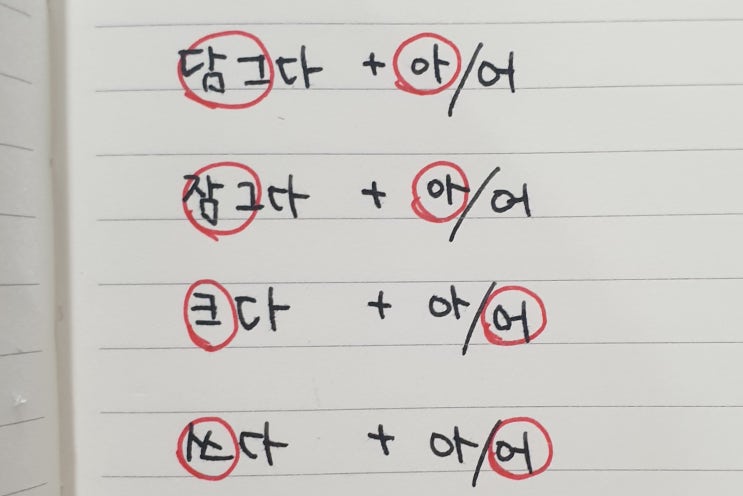 담그다 + 아/어
잠그다 + 아/어
크다 + 아/어
쓰다 + 아/어